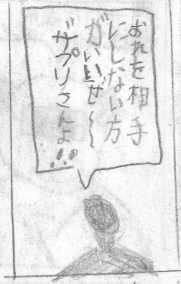 おれを相手
にしない方
がいいぜ〜
ザプリさんよ!!!